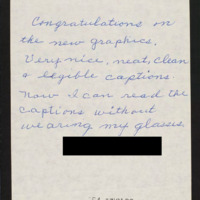 Congratulations on
the new graphics.
Very nice, neat, clean
& legible captions.
Now I can read the
captions without
wearing my glasses.